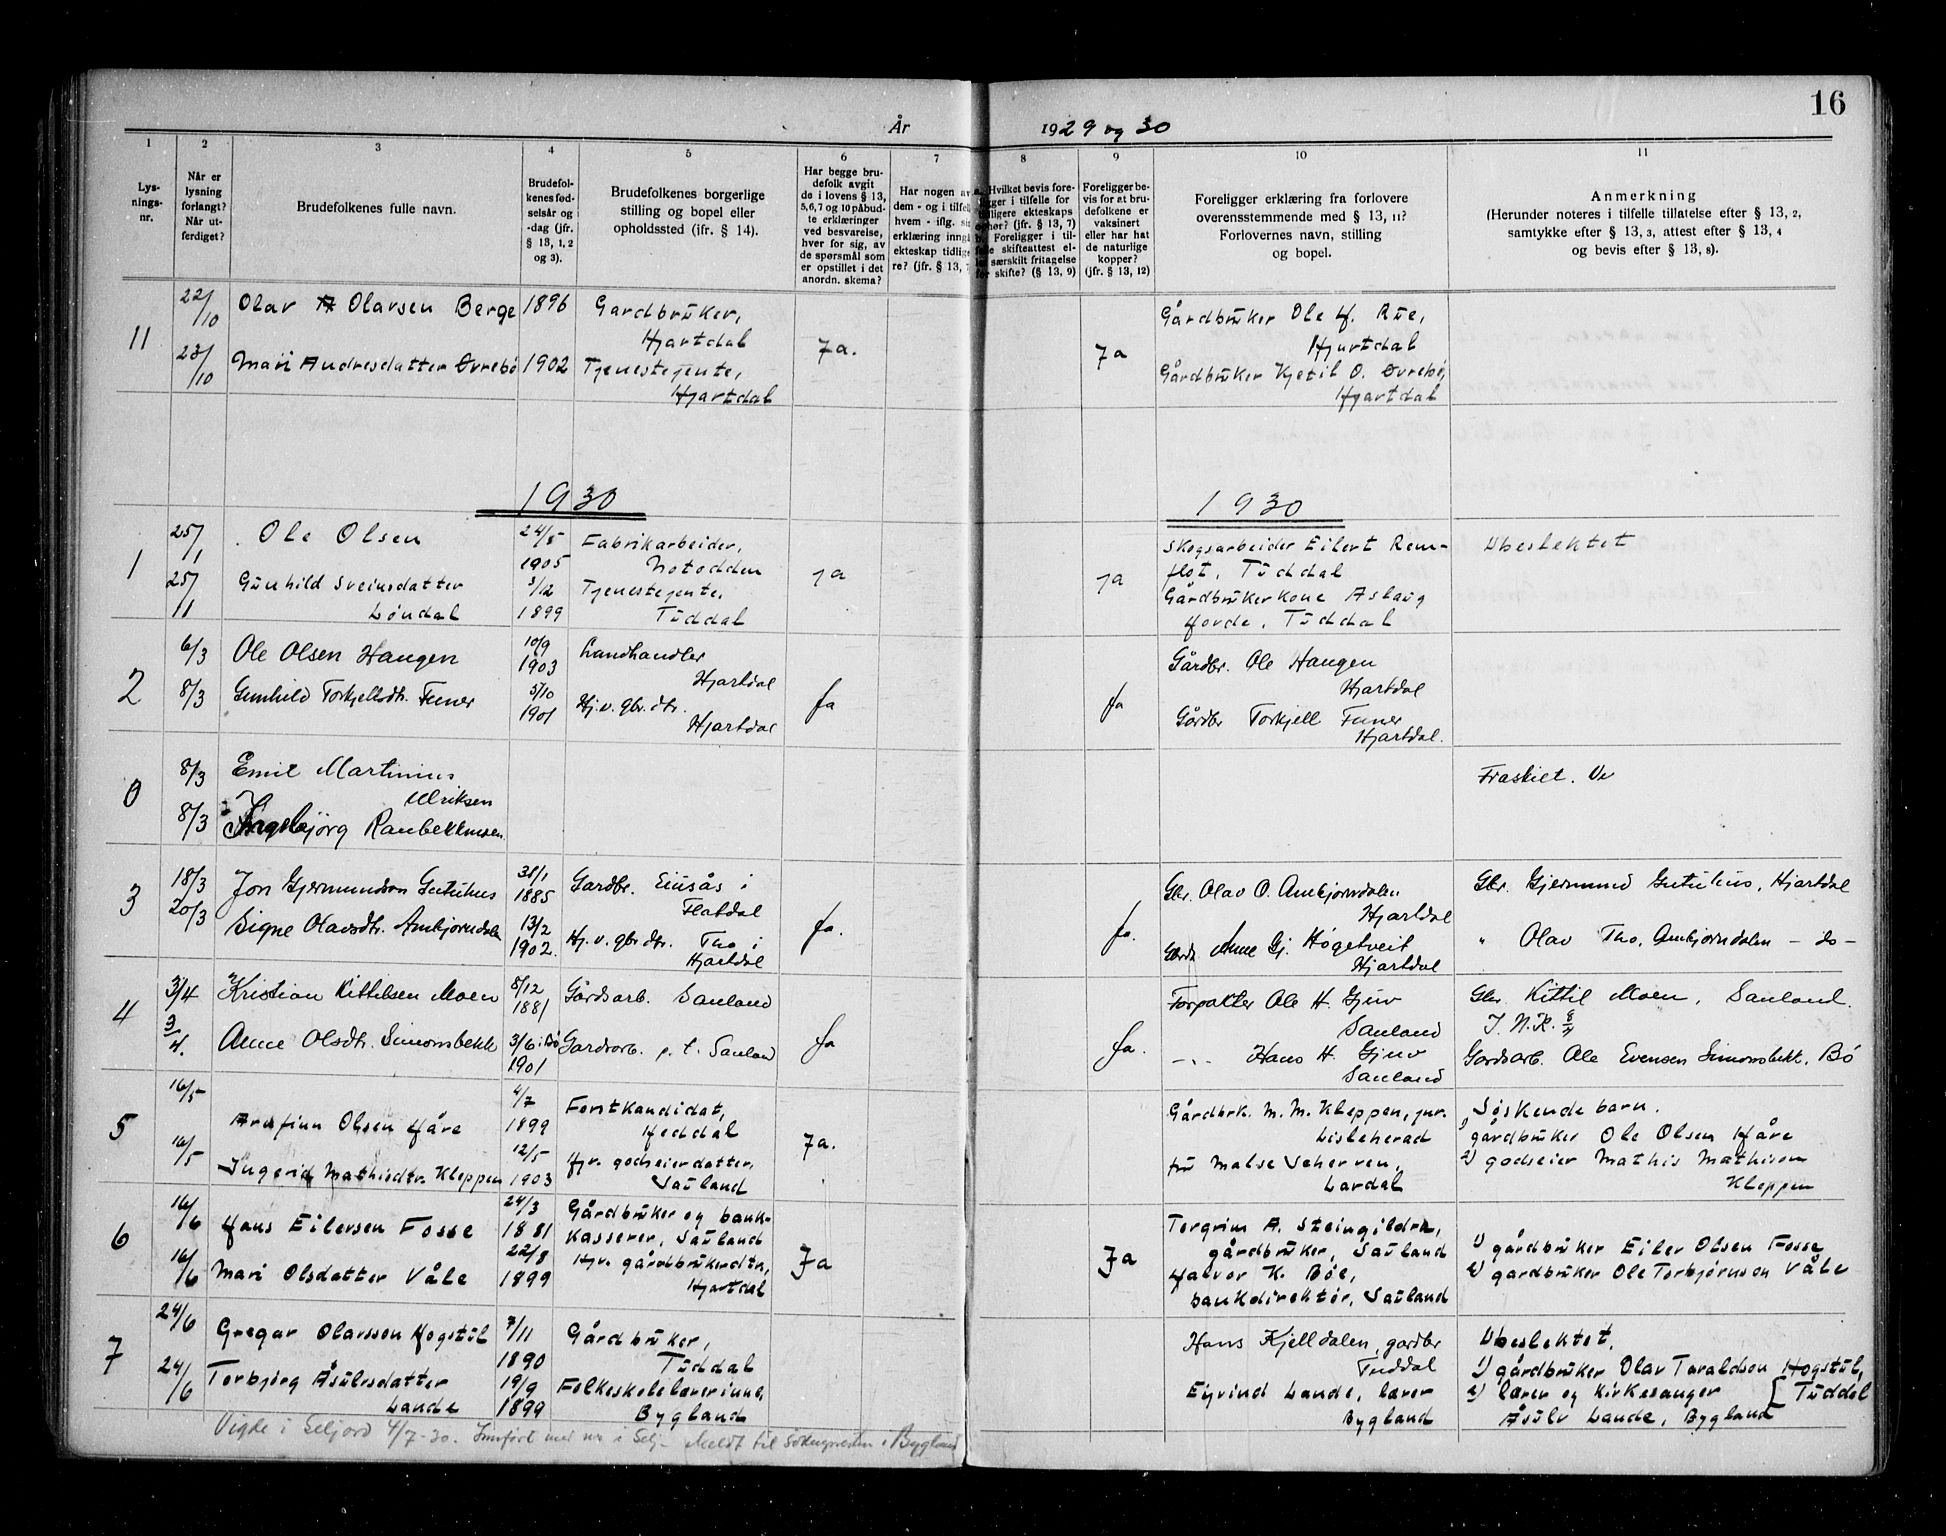 16
År 1929 og 30
1
2
3
4
5
6
7
8
9
10
11
Lys-
nings-
nr.
Når er
lysning
forlangt?
Når ut-
ferdiget?
Brudefolkenes fulle navn.
Brudefol-
kenes fød-
selsår og
-dag (jfr.
§ 13, 1, 2
og 3).
Brudefolkenes borgerlige
stilling og bopel eller
opholdssted (ifr. § 14).
Har begge bru-
defolk avgit
de i lovens § 13,
5,6,7 og 10 påbud-
te erklæringer
ved besvarelse,
hver for sig, av
de spørsmål som
er opstillet i det
anordn. skema?
Har nogen av
dem - og i tilfel
hvem - iflg. si
erklæring inngå
ekteskap tidlige
re? (jfr. § 13, 7
a. Hvilket bevis fore-
ligger i tilfelle for
tidligere ekteskaps
ophør? (jfr. § 13, 7)
b. Foreligger i til-
felle skifteattest el-
særskilt fritagelse
for skifte? (§ 13, 9)
Foreligger be-
vis for at bru-
defolkene er
vaksinert
eller har hat
de naturlige
kopper?
(jfr. § 13, 12)
Foreligger erklæring fra forlovere
overensstemmende med § 13, 11?
Forlovernes navn, stilling
og bopel.
Anmerkning
(Herunder noteres i tilfelle tillatelse efter § 13, 2,
samtykke efter § 13, 3, attest efter § 13, 4
og bevis efter § 13, 8).
11
22/10 Olav Olavsen Berge 1896 Gardbruker,
Hjartdal
23/10 Mari Andresdatter Øvrebø 1902 Tjenestejente,
Hjartdal
Ja.
Ja
Gårdbruker Ole H. Rue,
Hjartdal
Gårdbruker Kjetil O. Øvrebø,
Hjartdal
1930
1930
1
25/1 Ole Olsen 24/5 1905 Fabrikarbeider,
Notodden
25/1 Gunhild Sveinsdatter
Løndal
3/12 1899 Tjenestejente,
Tuddal
Ja
Ja
Skogsarbeider Eilert Rem-
flot, Tuddal
Gårdbrukerkone Aslaug
Hovde, Tuddal
Ubeslektet
2
6/3 Ole Olsen Haugen 10/9 1903 Landhandler
Hjartdal
8/3 Gunhild Torkjellsdtr. Funer 5/10 1901 Hj.v. gbr.dtr.
Hjartdal
Ja
Ja
Gårdbr. Ole Haugen
Hjartdal
Gårdbr Torkjell Funer
Hjartdal.
0
8/3 Emil Martinius
Ulriksen
8/3 Ingebjörg
Fraskilt.
3
18/3 Jon Gjermundson Gutuhus 31/1 1885 Gardbr. i
Flatdal
20/3 Signe Olavsdtr. Ambjørndalen 13/2 1902. Hj.v. gbr.dtr. Tho i
Hjartdal
Ja.
Ja.
Gbr. Olav O. Ambjørndalen
Hjartdal
Anne Gj. Høgetveit
Hjartdal
Gbr. Gjermund Gutuhus, Hjartdal
" Olav Tho, Ambjørndalen - do -
4
3/4 Kristian Kittilsen Moen 8/12 1881 Gårdsarb. Sauland
3/4. Anne Olsdtr. Simonsbekk 3/6 i Bø 1901 Gardsarb. p.t. Sauland
Ja
Ja.
Forpakter Ole H. Gjuv
Sauland
-„- Hans H. Gjuv
Sauland
Gbr. Kittil Moen, Sauland.
Gardsarb. Ole Evensen Simonsbekk, Bö
5
16/5 Arnfinn Olsen Håre 4/7 1899 Forstkandidat,
Heddal
16/5 Ingerid Mathisdtr. Kleppen 12/5 1903 Hjv. godseierdatter,
Sauland
Ja.
Gårdbrk. M. M. Kleppen, jnr.
Lisleherad
fru Malse Scherven,
Lardal
Søskendebarn.
1) gårdbruker Ole Olsen Håre
2) godseier Mathis Mathisen
Kleppen
6
16/6 Hans Eilersen Fosse 24/3 1881 Gårdbruker og bank-
kasserer, Sauland
16/6 Mari Olsdatter Våle 22/8 1899 Hjv. gårdbrukerdtr,
Hjartdal
Ja
Ja
Torgrim A. Steingildra,
gårdbruker, Sauland
Halvor K. Bøe,
bankdirektør, Sauland
1) gårdbruker Eiler Olsen Fosse
2) gardbruker Ole Torbjørnson Våle
7
24/6 Gregar Olavsson Hogstul 7/11 1890 Gårdbruker,
Tuddal
24/6 Torbjørg Åsulvsdatter
Lande
19/9 1899 Folkeskolelærerinne,
Bygland
Hans Kjelldalen, gardbr
Tuddal
Eyvind Lande, lærer
Bygland
Ubeslektet.
1) gårdbruker Olav Taraldson Hogstul,
Tuddal
2) lærer og kirkesanger
Åsulv Lande, Bygland
Vigde i Seljord 4/7-30. Innført med nr i Selj- Meldt til Soknepresten i Bygland